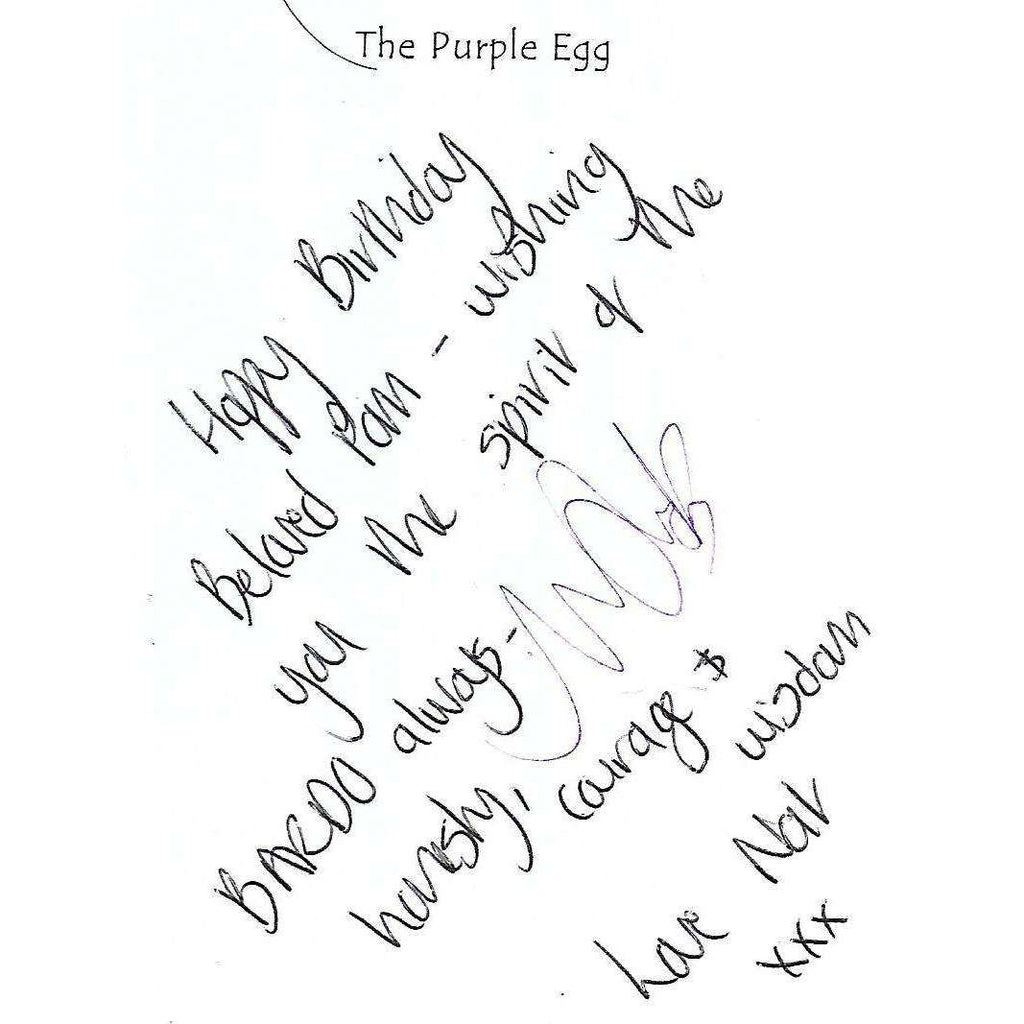 The Purple Egg
Happy Birthday
Beloved Pam - wishing
you the spirit of the
BARDO always -
honesty, courage &
wisdom
Love Nat
xxx